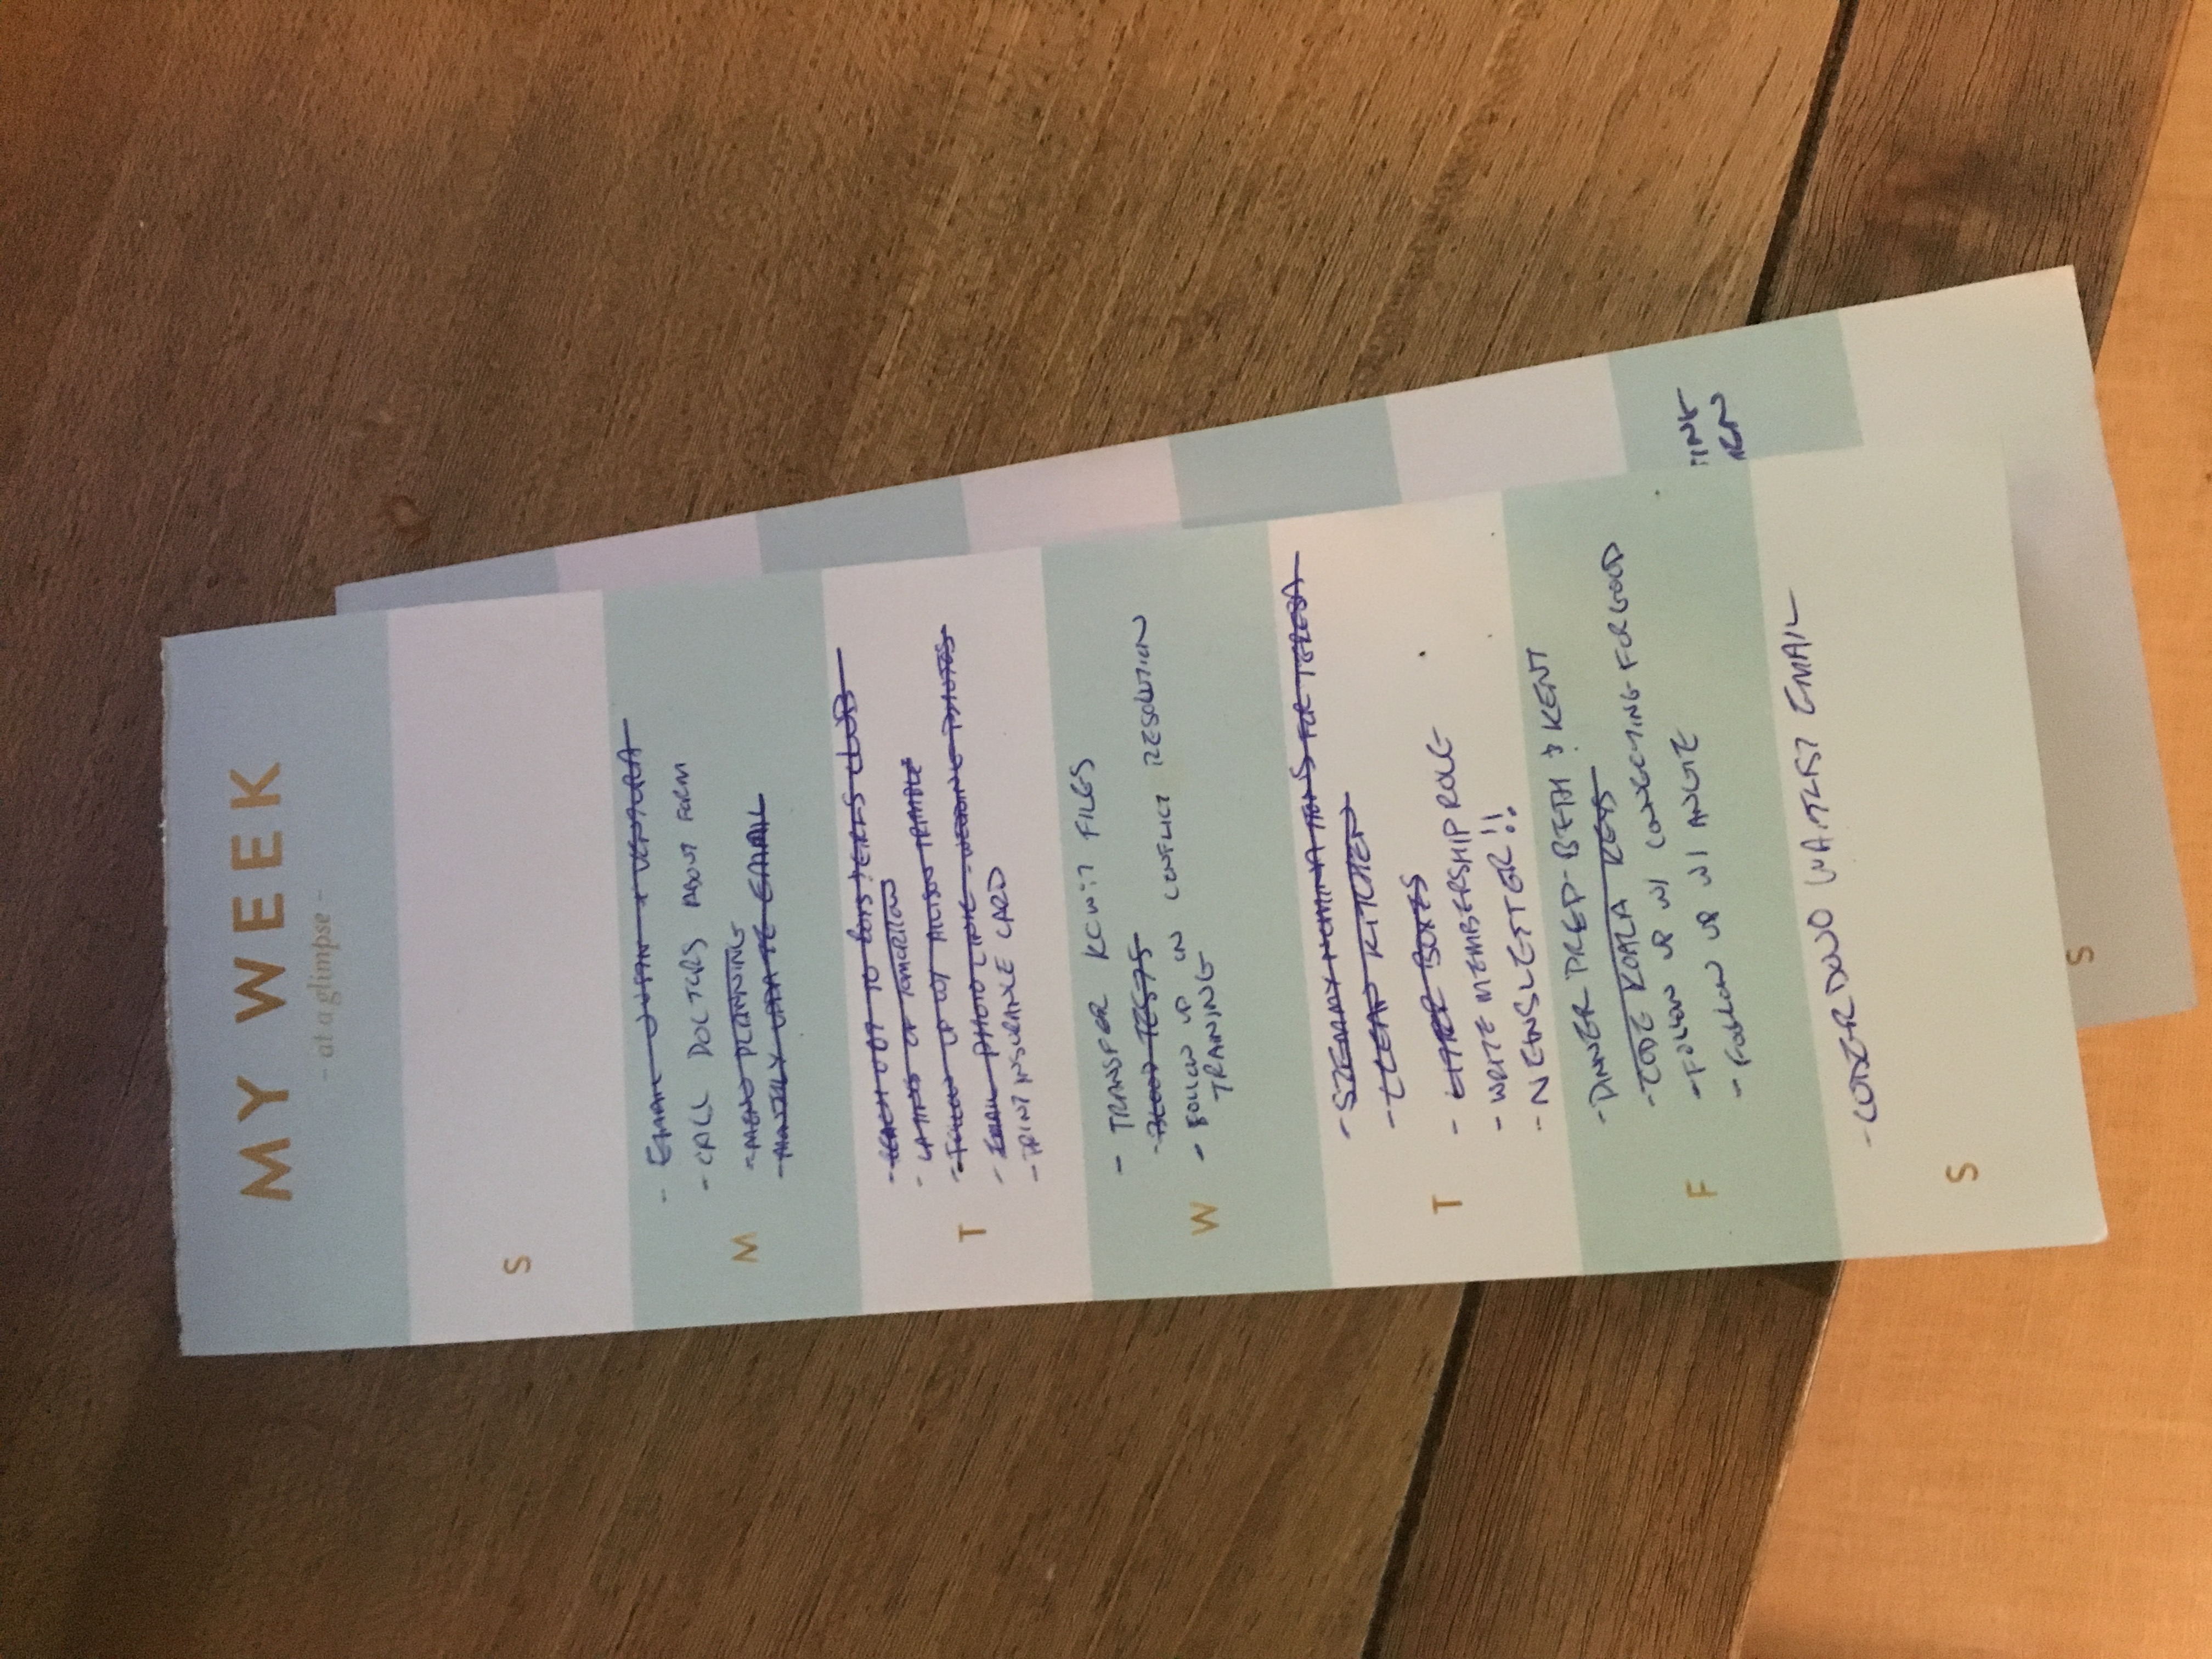 MY WEEK
- at a glimpse -
S
- EMAIL JUSTIN + VENTURA
- CALL DOCTORS ABOUT FORM
M
- MENU PLANNING
- MONTHLY UPDATE EMAIL
- REACH OUT TO BOYS & GIRLS CLUB
- LATINXS OF TOMORROW
- FOLLOW UP W/ ALLISON TRIMBLE
T
- EMAIL PHOTO LINK - WEDDING PHOTOS
- PRINT INSURANCE CARD
- TRANSFER KCWiT FILES
- BLOOD TESTS
W
- FOLLOW UP ON CONFLICT RESOLUTION
TRAINING
- SZEMMY NOMINATIONS FOR TERESA
- CLEAN KITCHEN
T
- LITTER BOXES
- WRITE MEMBERSHIP ROLE
- NEWSLETTER!!
- DINNER PREP - BETH & KENT
- CODE KOALA KEYS
- FOLLOW UP W/ CONNECTING FOR GOOD
F
- FOLLOW UP W/ ANGIE
- CODERDOJO WAITLIST EMAIL
S
S